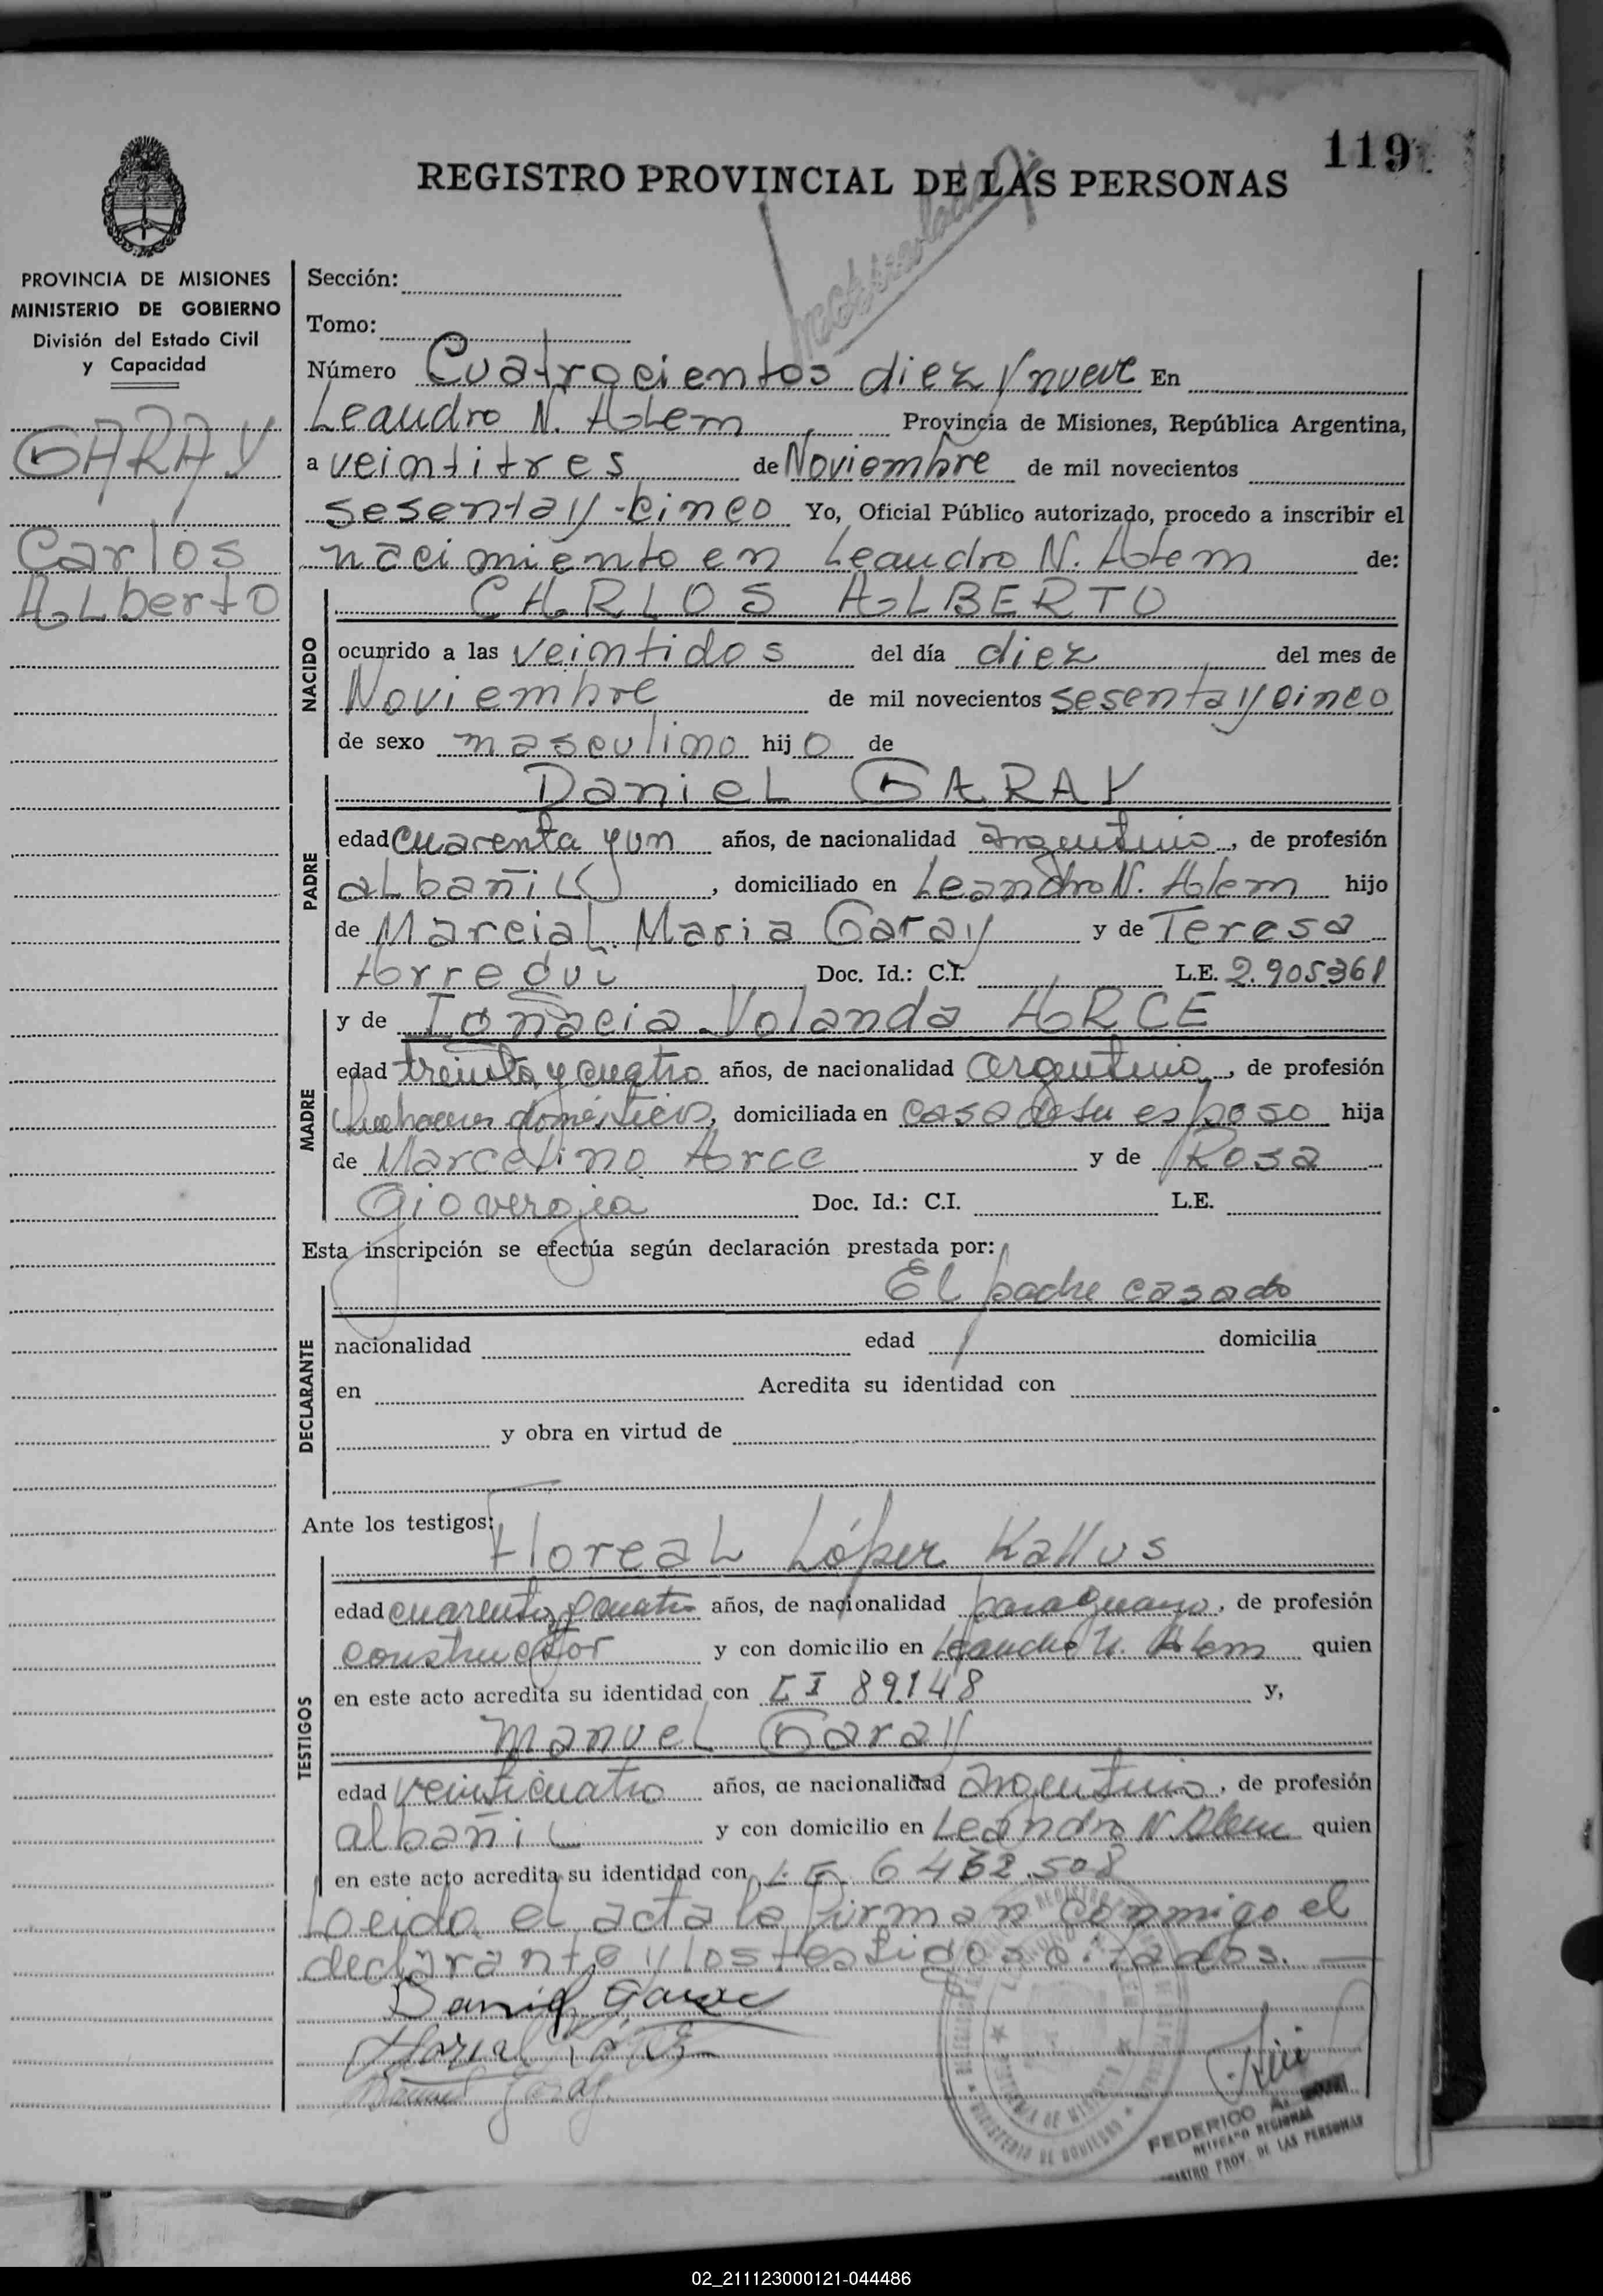 119
REGISTRO PROVINCIAL DE LAS PERSONAS
PROVINCIA DE MISIONES
MINISTERIO DE GOBIERNO
División del Estado Civil
y Capacidad
GARAY
Carlos
Alberto
Sección:
Tomo:
Número Cuatrocientos diez y nueve En
Leandro N. Alem Provincia de Misiones, República Argentina,
a veintitres de Noviembre de mil novecientos
sesenta y cinco Yo, Oficial Público autorizado, procedo a inscribir el
nacimiento en Leandro N. Alem de:
NACIDO
CARLOS ALBERTO
ocurrido a las veintidos del día diez del mes de
Noviembre de mil novecientos sesenta y cinco
de sexo masculino hijo de
PADRE
Daniel GARAY
edad cuarenta y un años, de nacionalidad argentino, de profesión
albañil, domiciliado en Leandro N. Alem hijo
de Marcial Maria Garay y de Teresa
Arregui Doc. Id.: C.I. L.E. 2.905.361
MADRE
y de Ignacia Yolanda ARCE
edad treinta y cuatro años, de nacionalidad argentina, de profesión
quehaceres domésticos, domiciliada en casa de su esposo hija
de Marcelino Arce y de Rosa
Doc. Id.: C.I. L.E.
Esta inscripción se efectúa según declaración prestada por:
DECLARANTE
El padre casado
nacionalidad edad domicilia
en Acredita su identidad con
y obra en virtud de
Ante los testigos:
TESTIGOS
Floreal López Kallus
edad cuarenta y cuatro años, de nacionalidad paraguayo, de profesión
constructor y con domicilio en Leandro N. Alem quien
en este acto acredita su identidad con CI 89148 y,
Manuel Garay
edad veinticuatro años, de nacionalidad argentino, de profesión
albañil y con domicilio en Leandro N. Alem quien
en este acto acredita su identidad con LE 6432.508
Leido el acta la firman conmigo el
declarante y los testigos citados.
Daniel Garay
Manuel Garay
FEDERICO A.
DELEGADO REGIONAL
REGISTRO PROV. DE LAS PERSONAS
02_211123000121-044486